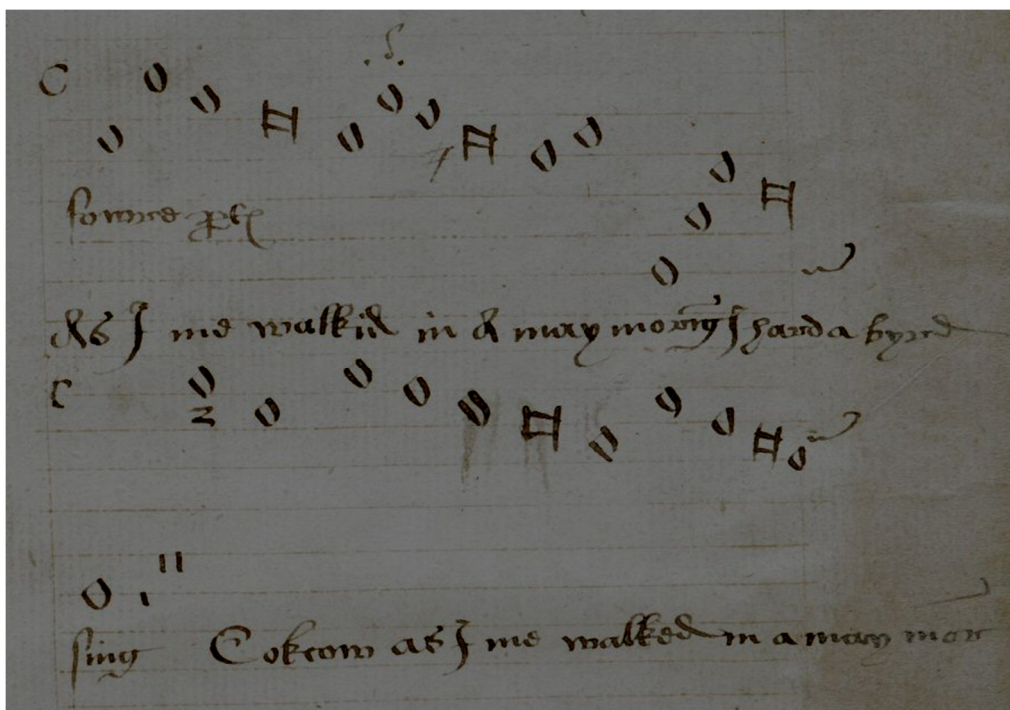 As I me walkid in A may morīg I hard a byrd
sing Cokcow as I me walked in a may mor